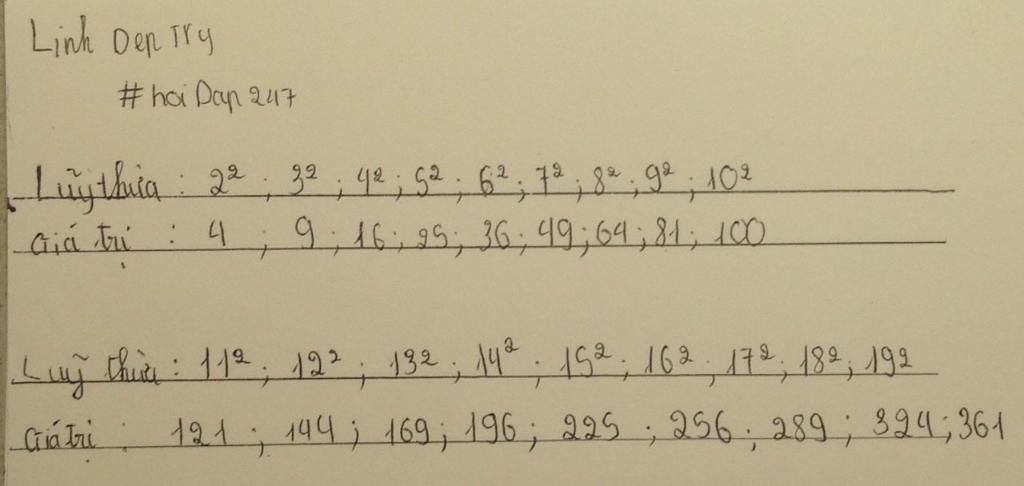 Linh Dep Try
#hoiDap247
Luỹ thừa : 2² ; 3² ; 4² ; 5² ; 6² ; 7² ; 8² ; 9² ; 10²
Giá trị : 4 ; 9 ; 16 ; 25 ; 36 ; 49 ; 64 ; 81 ; 100
Luỹ thừa : 11² ; 12² ; 13² ; 14² ; 15² ; 16² ; 17² ; 18² ; 19²
Giá trị : 121 ; 144 ; 169 ; 196 ; 225 ; 256 ; 289 ; 324 ; 361